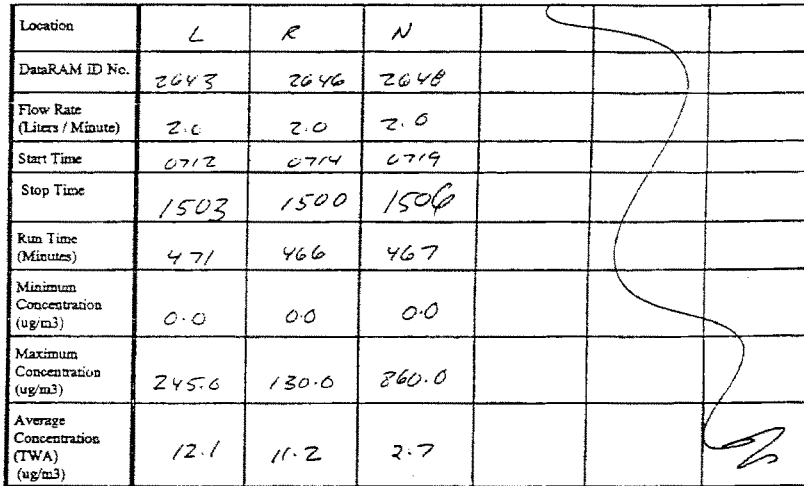 Location L R N
DataRAM ID No. 2643 2646 2648
Flow Rate
(Liters / Minute) 2.0 2.0 2.0
Start Time 0712 0714 0719
Stop Time 1503 1500 1506
Run Time
(Minutes) 471 466 467
Minimum
Concentration
(ug/m3) 0.0 0.0 0.0
Maximum
Concentration
(ug/m3) 245.0 130.0 860.0
Average
Concentration
(TWA)
(ug/m3) 12.1 11.2 2.7